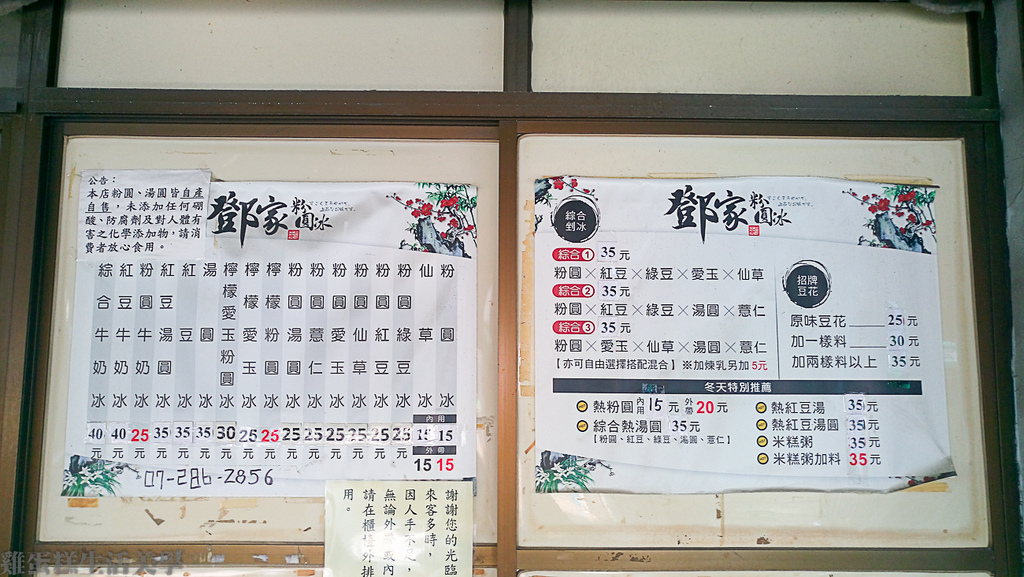 公告：
本店粉圓、湯圓皆自產
自售，未添加任何硼
酸、防腐劑及對人體有
害之化學添加物，請消
費者放心食用。
鄧家粉圓冰
粉圓冰 內用 15 元 外帶 15
仙草冰 內用 15 元 外帶 15
粉圓綠豆冰 25 元
粉圓紅豆冰 25 元
粉圓仙草冰 25 元
粉圓愛玉冰 25 元
粉圓薏仁冰 25 元
粉圓湯圓冰 25 元
檸檬粉圓冰 25 元
檸檬愛玉冰 25 元
檸檬愛玉粉圓冰 30 元
湯圓冰 35 元
紅豆冰 35 元
紅豆湯圓冰 35 元
粉圓牛奶冰 25 元
紅豆牛奶冰 40 元
綜合牛奶冰 40 元
07-286-2856
謝謝您的光臨
來客多時，
因人手不足，
無論外帶或內
請在櫃檯外排
用。
鄧家粉圓冰
綜合
剉冰
綜合1 35元
粉圓×紅豆×綠豆×愛玉×仙草
綜合2 35元
粉圓×紅豆×綠豆×湯圓×薏仁
綜合3 35元
粉圓×愛玉×仙草×湯圓×薏仁
【亦可自由選擇搭配混合】※加煉乳另加5元
招牌
豆花
原味豆花____25元
加一樣料____30元
加兩樣料以上 35元
冬天特別推薦
熱粉圓 內用 15元 外帶 20元
綜合熱湯圓 35元
【粉圓、紅豆、綠豆、湯圓、薏仁】
熱紅豆湯 35元
熱紅豆湯圓 35元
米糕粥 35元
米糕粥加料 35元
雞蛋糕生活美學